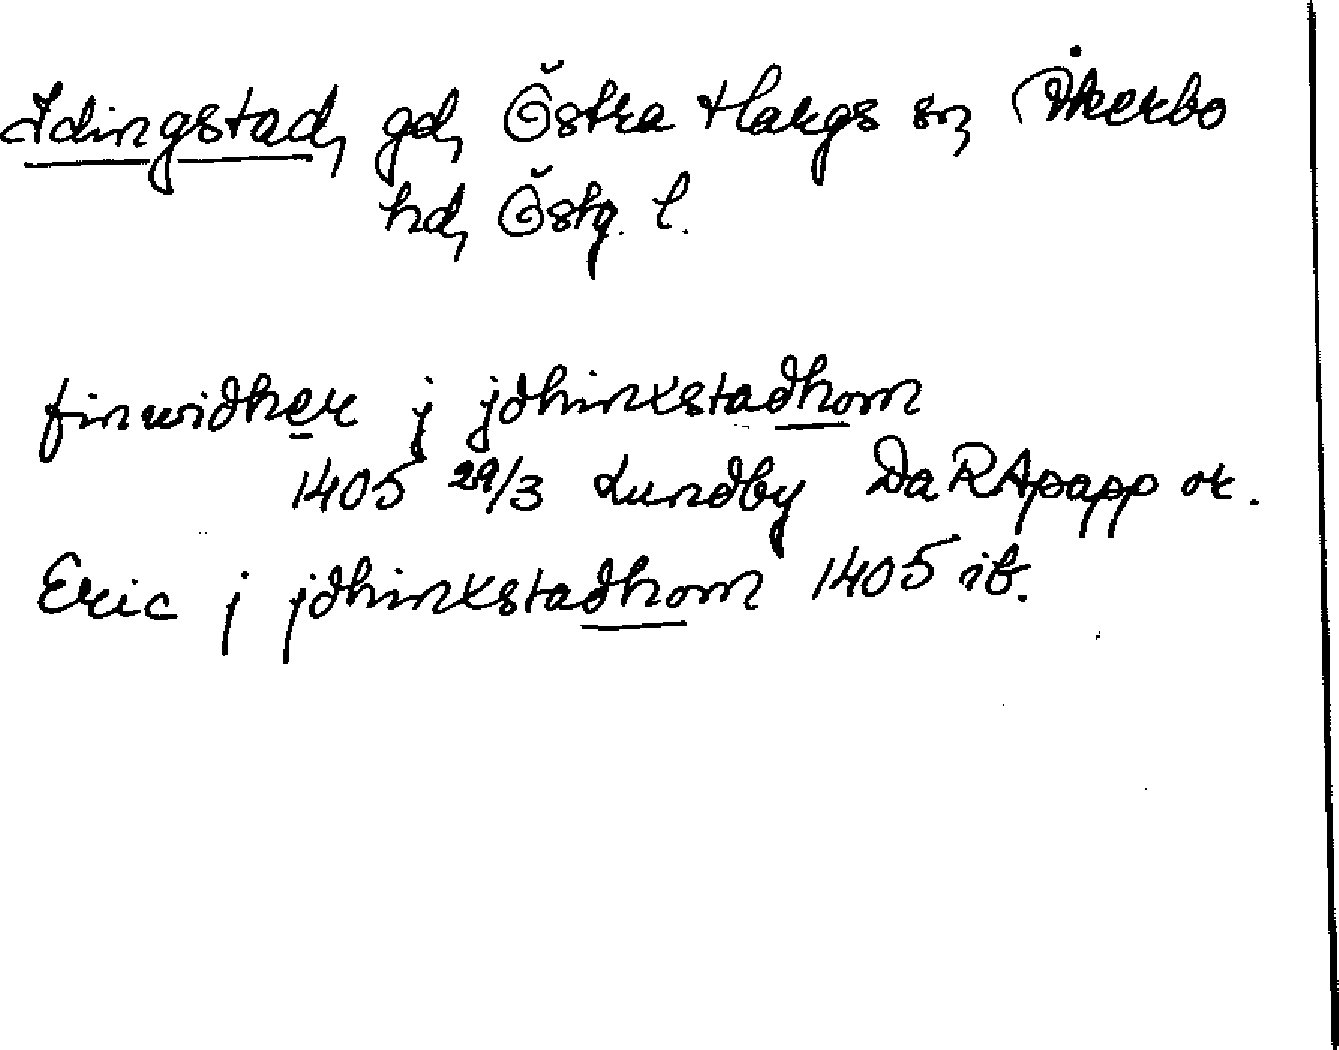 Idingstad, gd, Östra Hargs sn, Åkerbo
hd, Östg. l.
finwidher j jdhinxstadhom
1405 29/3 Lundby Da RApapp or.
Eric j jdhinxstadhom 1405 ib.